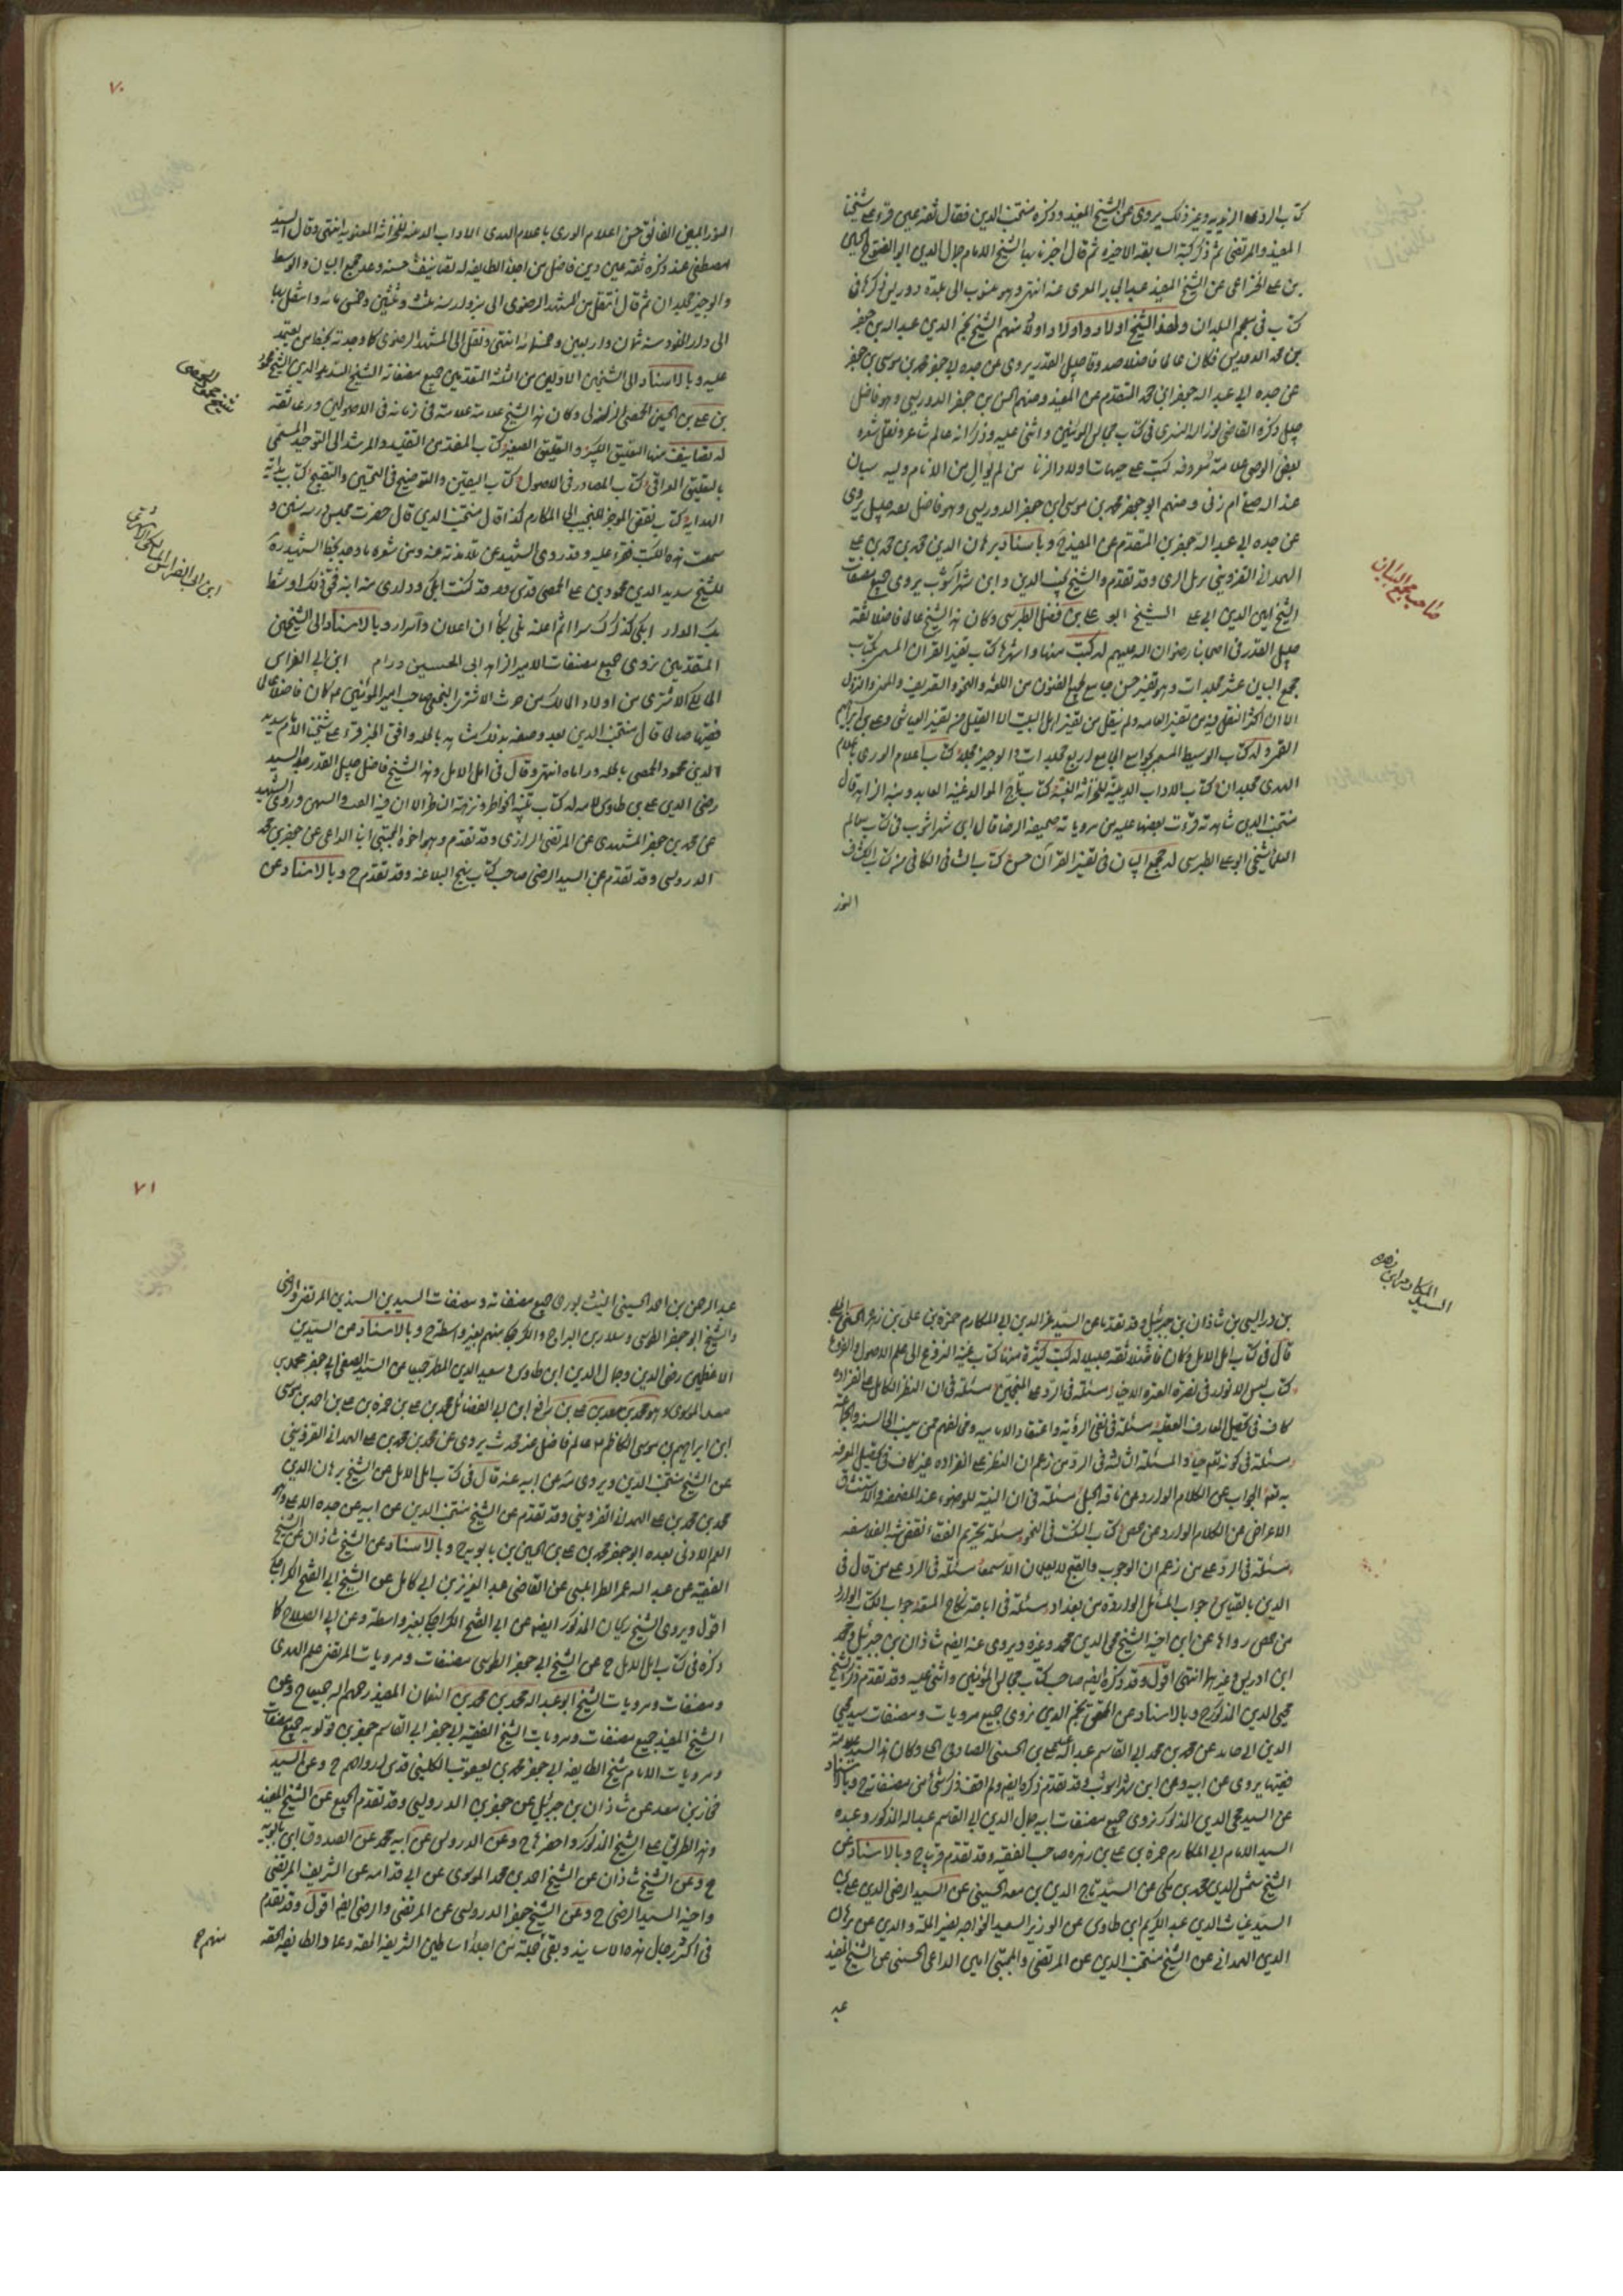 كتاب الرد على الزيدية وغير ذلك يروى عن الشيخ المفيد وذكره منتجب الدين فقال ثقة عين قرء على شيخنا
المفيد والمرتضى ثم ذكر كتبه السابقة الاخيرة ثم قال اخبرنا بها الشيخ الامام جمال الدين ابو الفتوح الحسين
بن علي الخزاعي عن الشيخ المفيد عبد الجبار المقرى عنه انتهى وهو منسوب الى عدة دوريس ذكرها في
كتاب في معجم البلدان ولهذا الشيخ اولاد واولاد اولاد منهم الشيخ نجم الدين عبد الله بن جعفر
بن محمد الدوريستى فكان عالما فاضلا صدوقا جليل القدر يروى عن جده ابي جعفر محمد بن موسى بن جعفر
عن جده ابي عبد الله جعفر بن محمد المتقدم عن المفيد ومنهم الحسن بن جعفر الدوريستى وهو فاضل
جليل ذكره القاضي نور الله التسترى في كتاب مجالس المؤمنين واثنى عليه وذكر انه عالم شاعر ونقل شعره
بغض الوصي علامة معروفة كتبت على جبهات اولاد الزنا من لم يوال من الانام وليه سيان
عند الله صلى ام زنى ومنهم ابو جعفر محمد بن موسى بن جعفر الدوريستى وهو فاضل ثقة جليل يروى
عن جده ابي عبد الله جعفر بن المتقدم عن المفيد ح وباسناد برهان الدين محمد بن محمد بن علي
الهمداني القزويني نزيل الرى وقد تقدم والشيخ نجيب الدين وابن شهر اشوب يروى جميع مصنفات
الشيخ امين الدين ابي علي الشيخ ابو علي بن فضل الطبرسى وكان هذا الشيخ عالما فاضلا ثقة
جليل القدر في اصحابنا رضوان الله عليهم له كتب منها واشهرها كتاب تفسير القران المسمى بكتاب
مجمع البيان عشر مجلدات وهو تفسير حسن جامع لجميع الفنون من اللغة والنحو والتصريف والمعنى والنزول
الا ان اكثر النقل فيه من تفسير العامة ولم ينقل من تفسير اهل البيت الا القليل من تفسير العياشى وعلي بن ابراهيم
القمى وله كتاب الوسيط المسمى بجوامع الجامع اربع مجلدات والوجيز مجلد كتاب اعلام الورى باعلام
الهدى مجلدان كتاب الاداب الدينية للخزانة المعينية كتاب تاج المواليد غنية العابد ومنية الزاهد قال
منتجب الدين شاهدته وقرأت بعضها عليه من مروياته صحيفة الرضا قال ابن شهر اشوب في كتاب معالم
العلماء شيخي ابو علي الطبرسى له مجمع البيان في تفسير القرآن حسن كتاب الشافي الكافي من كتاب الكشاف
النور
صاحب مجمع البيان
٧٠
النور المبين الفائق حسن اعلام الورى باعلام الهدى الاداب الدينية للخزانة المعينية انتهى وقال السيد
مصطفى عند ذكره ثقة عين دين فاضل من اجلاء الطايفة له تصانيف حسنة وعد مجمع البيان والوسيط
والوجيز مجلدان ثم قال انتقل من المشهد الرضوى الى سبزوار سنة ثلث وعشرين وخمسمائة وانتقل بها
الى دار الخلود سنة ثمان واربعين وخمسمائة انتهى ونقل الى المشهد الرضوى كما وجدته بخط من يعتمد
عليه وبالاسناد الى الشيخين الاولين من الثلثة المتقدمين جميع مصنفات الشيخ السديد الدين الشيخ محمود
بن علي بن الحسن الحمصى الرازى وكان هذا الشيخ علامة في زمانه في الاصولين ورعا ثقة
له تصانيف منها التعليق الكبير والتعليق الصغير كتاب المنقذ من التقليد والمرشد الى التوحيد المسمى
بالتعليق العراقي كتاب المصادر في الاصول كتاب التبيين والتوضيح في التحسين والتقبيح كتاب بداية
الهداية كتاب نقض الموجز للنجيب ابي المكارم كذا قال منتجب الدين قال حضرت مجلس درسه سنين و
سمعت هذه الكتب تقرء عليه وقد روى الشهيد عن تلامذته عنه ومن شعره ما وجد بخط الشهيد ره
للشيخ سديد الدين محمود بن علي الحمصى
المتقدمين نروى جميع مصنفات الامير الزاهد ابي الحسين ورام ابن ابي الفراس
المالكي الاشترى من اولاد مالك بن حرث الاشتر النخعى صاحب امير المؤمنين ع كان فاضلا
فقيها صالحا قال منتجب الدين بعد وصفه بذلك شاهدته بالحلة ووافق الخبر قرء على شيخنا الامام سديد
الدين محمود الحمصى بالحلة وراعاه انتهى وقال في امل الامل وهذا الشيخ فاضل جليل القدر جد السيد
رضى الدين علي بن طاوس لامه له كتاب تنبيه الخواطر ونزهة الناظر الا ان فيه الغث والسمين وروى الشهيد
عن محمد بن جعفر المشهدى عن المرتضى الرازى وقد تقدم وهو واخوه المجتبى ابنا الداعى عن جعفر بن محمد
الدوريستى وقد تقدم عن السيد الرضى صاحب كتاب نهج البلاغة وقد تقدم ح وبالاسناد عن
شيخ محمود الحمصى
ابن ابي الفراس المالكي الاشترى
السيد المكارم ابن زهره
بن ادريس بن شاذان بن جبرئيل وقد تقدما عن السيد عز الدين ابي المكارم حمزة بن علي بن زهرة الحسينى الحلبى
قال في كتاب امل الامل وكان فاضلا ثقة جليلا له كتب كثيرة منها كتاب غنية النزوع الى علم الاصول والفروع
كتاب قبس الانوار في نصرة العترة الاخيار مسئلة في الرد على المنجمين مسئلة في ان النظر الكامل على انفراده
كاف في تحصيل المعارف العقلية مسئلة في نفى الرؤية واعتقاد الامامية ومخالفيهم ممن ينسب الى السنة والجماعة
مسئلة في كونه تعالى حيا والمسئلة الثالثة في الرد من زعم ان النظر على انفراده غير كاف في تحصيل المعرفة
به تعالى الجواب عن الكلام الوارد من ناحية الجبل مسئلة في ان النية للوضوء عند المضمضة والاستنشاق
الاعتراض على الكلام الوارد من حمص كتاب النكت في النحو مسئلة تحريم الفقاع نقض شبه الفلاسفة
مسئلة في الرد على من زعم ان الوجوب والقبح لا يعلمان الا سمعا مسئلة في الرد على من قال في
الدين بالقياس جواب المسائل الواردة من بغداد مسئلة في اباحة نكاح المتعة جواب الكتاب الوارد
من حمص رواها عن ابن اخيه الشيخ محى الدين محمد وغيره ويروى عنه ايضا شاذان بن جبرئيل ومحمد
ابن ادريس وغيرهما انتهى اقول وقد ذكره ايضا صاحب كتاب مجالس المؤمنين واثنى عليه وقد تقدم ذكر الشيخ
محى الدين المذكور ح وبالاسناد عن المحقق نجم الدين نروى جميع مرويات ومصنفات سيد محى
الدين ابي حامد عن محمد بن محمد ابي القاسم عبد الله بن علي بن الحسينى الصادقى الحلبى وكان هذا السيد علامة
فقيها يروى عن ابيه وعن ابن شهر اشوب وقد تقدم ذكره ايضا ولم اقف ذكر شئ من مصنفاته ح وبالاسناد
عن السيد محى الدين المذكور نروى جميع مصنفات ابيه جمال الدين ابي القاسم عبد الله المذكور وعمه
السيد الامام ابي المكارم حمزة بن علي بن زهره صاحب الغنية وقد تقدم قريبا ح وبالاسناد عن
الشيخ شمس الدين محمد بن مكى عن السيد تاج الدين بن معية الحسينى عن السيد رضى الدين علي بن
السيد غياث الدين عبد الكريم ابن طاوس عن الوزير السعيد الخواجه نصير الملة والدين عن برهان
الدين الهمدانى عن الشيخ منتجب الدين عن المرتضى والمجتبى ابنى الداعى الحسنى عن الشيخ المفيد
عبد
٧١
عبد الرحمن بن احمد الحسينى النيشابورى جميع مصنفاته ومصنفات السيدين السندين المرتضى والرضى
والشيخ ابو جعفر الطوسى وسلار بن البراج والكراجكى منهم بغير واسطة ح وبالاسناد عن السيدين
الاعظمين رضى الدين وجمال الدين ابن طاوس وسعيد الدين المطهر جميعا عن السيد الصفى ابي جعفر محمد بن
معد الموسوى وهو محمد بن معد بن علي بن رافع ابن ابي الفضائل محمد بن علي بن حمزة بن علي بن احمد بن موسى
ابن ابراهيم بن موسى الكاظم ع عالم فاضل خير محدث يروى عن محمد بن محمد بن علي الهمدانى القزوينى
عن الشيخ منتجب الدين ويروى منه عن ابيه عنه قال في كتاب امل الامل عن الشيخ برهان الدين
محمد بن محمد بن علي الهمدانى القزوينى وقد تقدم عن الشيخ منتجب الدين عن ابيه عن جده الاعلى
العم الادنى بعده ابو جعفر محمد بن علي بن الحسين بن بابويه ح وبالاسناد عن الشيخ شاذان عن الشيخ
الفقيه عن عبد الله عمر الطرابلسى عن القاضى عبد العزيز بن ابي كامل عن الشيخ ابي الفتح الكراجكى
اقول ويروى الشيخ ريحان المذكور ايضا عن ابي الفتح الكراجكى بغير واسطة وعن ابي الصلاح كما
ذكره في كتاب امل الامل ح عن الشيخ ابي جعفر الطوسى مصنفات ومرويات المرتضى علم الهدى
ومصنفات ومرويات الشيخ ابو عبد الله محمد بن محمد بن النعمان المفيد رحمهم الله جميعا ح وعن
الشيخ المفيد جميع مصنفات ومرويات الشيخ الفقيه ابي جعفر ابي القاسم جعفر بن قولويه جميع مصنفات
ومرويات الامام شيخ الطايفة ابي جعفر محمد بن يعقوب الكلينى قدس الله ارواحهم ح وعن السيد
فخار بن معد عن شاذان بن جبرئيل عن جعفر بن الدوريستى وقد تقدم الجميع عن الشيخ المفيد
وهذا الطريق على الشيخ المذكور واحضر ح وعن الدوريستى عن ابيه محمد عن الصدوق ابن بابويه
ح وعن الشيخ شاذان عن الشيخ احمد بن محمد الموسوى عن ابن قدامه عن الشريف المرتضى
واخيه السيد الرضى ح وعن الشيخ جعفر الدوريستى عن المرتضى والرضى ايضا اقول وقد تقدم
في اكثر رجال هذه الاسانيد وبقى جملة من اجلاء اساطين الشريعة الحقة وعماد الطايفة المحقة
منهم ح